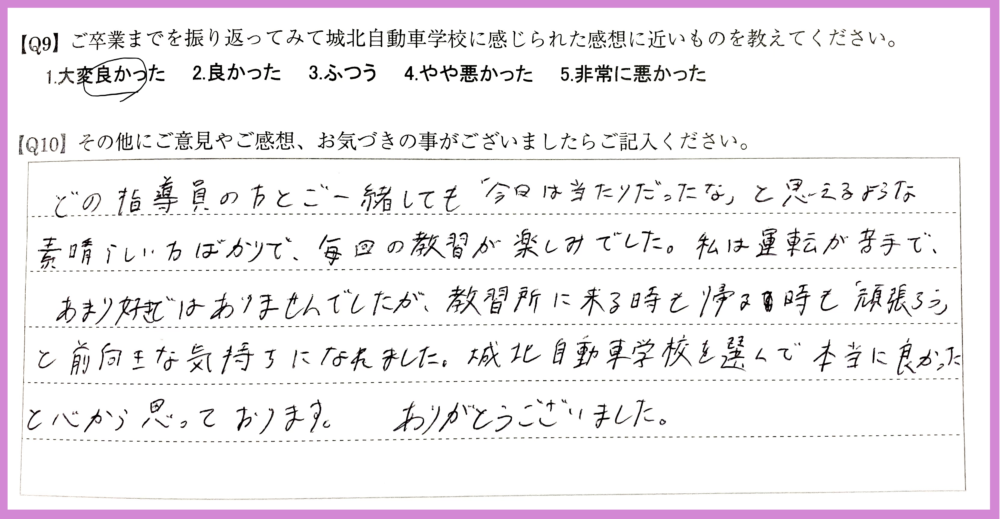 【Q9】ご卒業までを振り返ってみて城北自動車学校に感じられた感想に近いものを教えてください。
1.大変良かった 2.良かった 3.ふつう 4.やや悪かった 5.非常に悪かった
【Q10】その他にご意見やご感想、お気づきの事がございましたらご記入ください。
どの指導員の方とご一緒しても「今日は当たりだったな」と思えるような
素晴らしい方ばかりで、毎回の教習が楽しみでした。私は運転が苦手で、
あまり好きではありませんでしたが、教習所に来る時も帰る時も「頑張ろう」
と前向きな気持ちになれました。城北自動車学校を選んで本当に良かった
と心から思っております。 ありがとうございました。